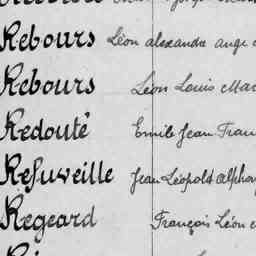 Rebours Léon alexandre ange
Rebours Léon Louis
Redouté Emile Jean
Refuveille Jean Léopold alphon
Regeard François Léon